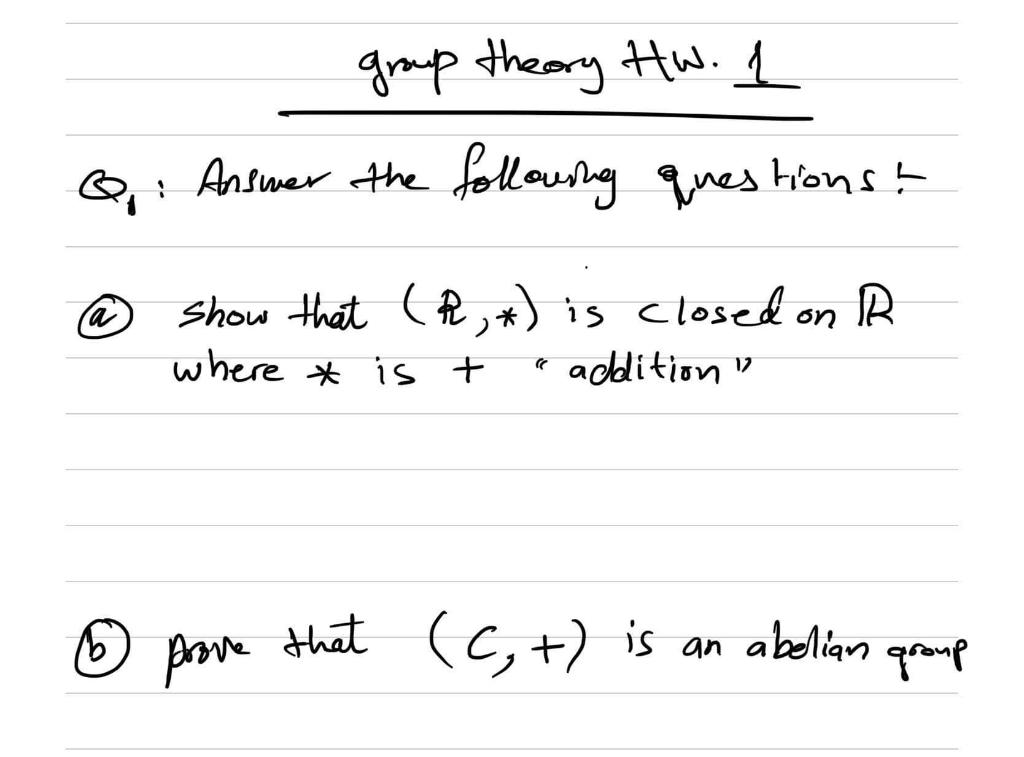 group theory HW. 1
Q1: Answer the following questions:-
(a) show that (R, *) is closed on ℝ
where * is + "addition"
(b) prove that (C, +) is an abelian group